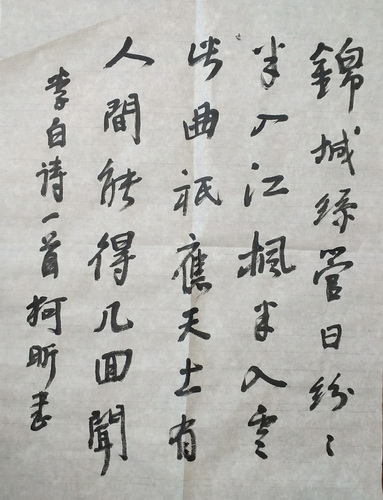 錦城絲管日紛〻
半入江楓半入雲
此曲祇應天上有
人間能得几回聞
李白诗一首柯昕书